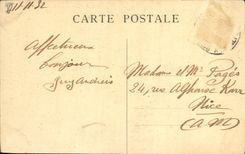 11.11.32
CARTE POSTALE
Affectueux
bonjour
Madame et Mr Pagès
24, rue Alphonse Karr
Nice
(A.M)